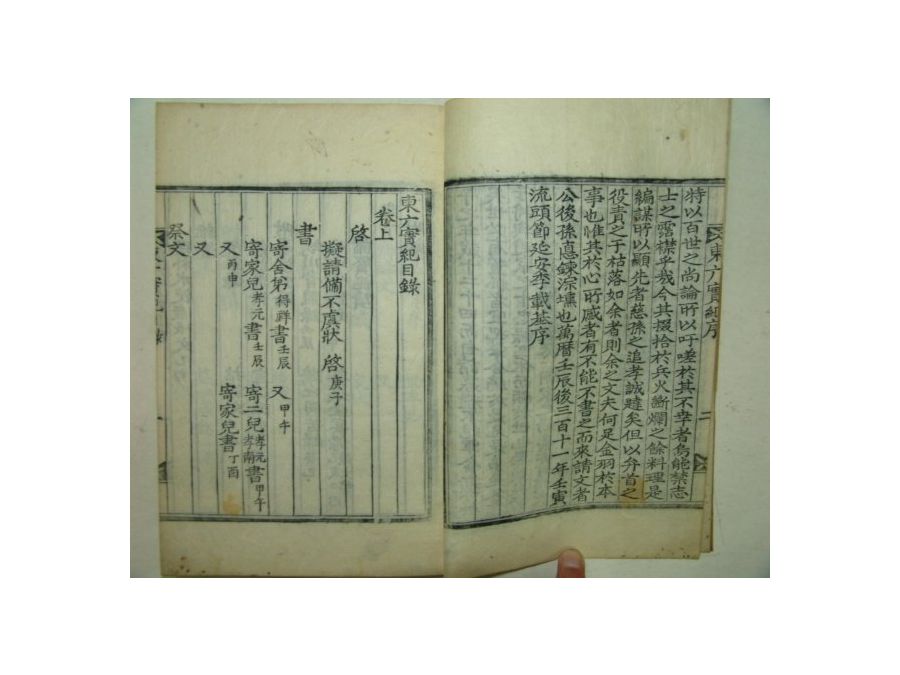 東六實紀序
二
特以百世之尚論所以吁嗟於其不幸者烏能禁志
士之霑襟乎哉今其掇拾於兵火斷爛之餘料理是
編謀所以顯先者慈孫之追孝誠韙矣但以弁首之
役責之于枯落如余者則余之文夫何足金羽於本
事也惟其於心所感者有不能不書之而來請文者
公後孫悳鍊深壎也萬曆壬辰後三百十一年壬寅
流頭節延安李載基序
東六實紀目錄
卷上
啓
擬請備不虞狀 啓庚子
書
寄舍第得祥書壬辰 又甲午
寄家兒孝元書壬辰 寄二兒孝元孝南書甲午
又丙申 寄家兒書丁酉
又
祭文